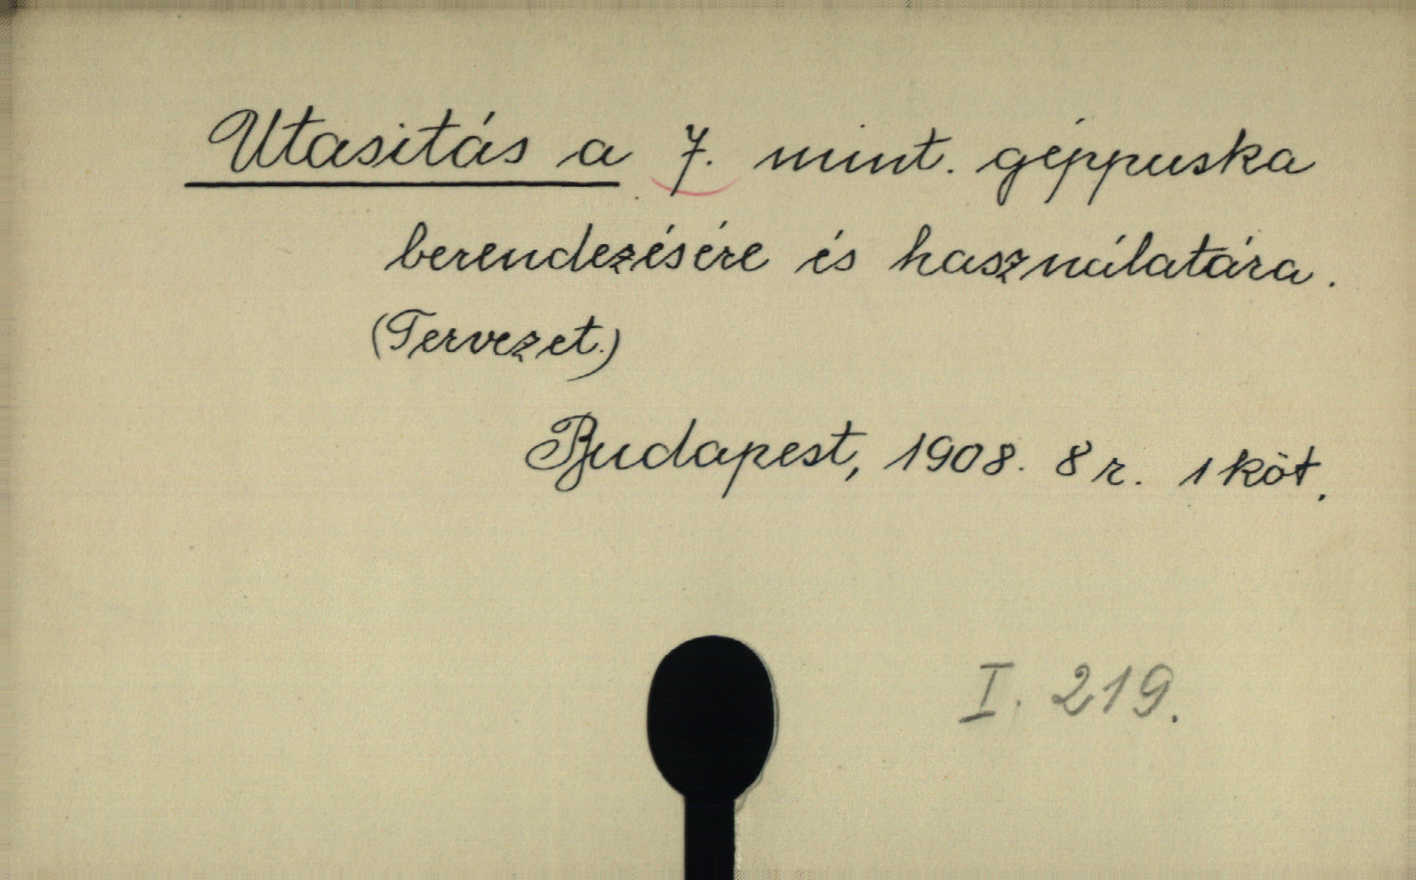 Utasitás a 7. mint. géppuska
berendezésére és használatára.
(Tervezet.)
Budapest, 1908. 8 r. 1 köt.
I. 219.